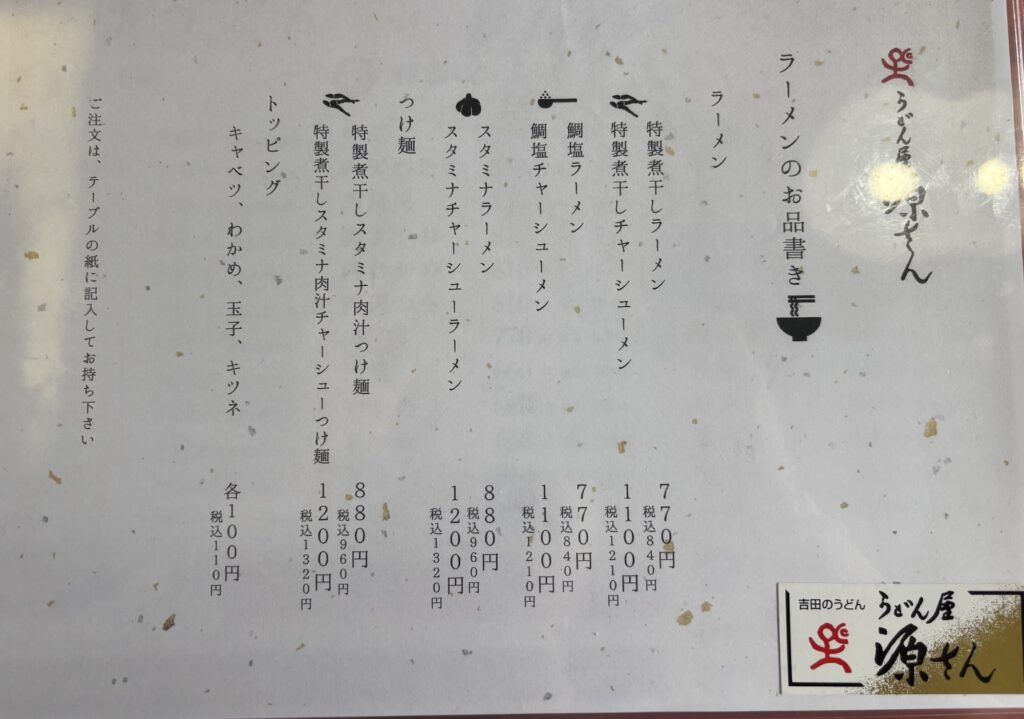 うどん屋
源さん
ラーメンのお品書き
ラーメン
特製煮干しラーメン 770円
税込840円
特製煮干しチャーシューメン 1100円
税込1210円
鯛塩ラーメン 770円
税込840円
鯛塩チャーシューメン 1100円
税込1210円
スタミナラーメン 880円
税込960円
スタミナチャーシューラーメン 1200円
税込1320円
つけ麺
特製煮干しスタミナ肉汁つけ麺 880円
税込960円
特製煮干しスタミナ肉汁チャーシューつけ麺 1200円
税込1320円
トッピング
キャベツ、わかめ、玉子、キツネ 各100円
税込110円
ご注文は、テーブルの紙に記入してお持ち下さい
吉田のうどん
うどん屋
源さん